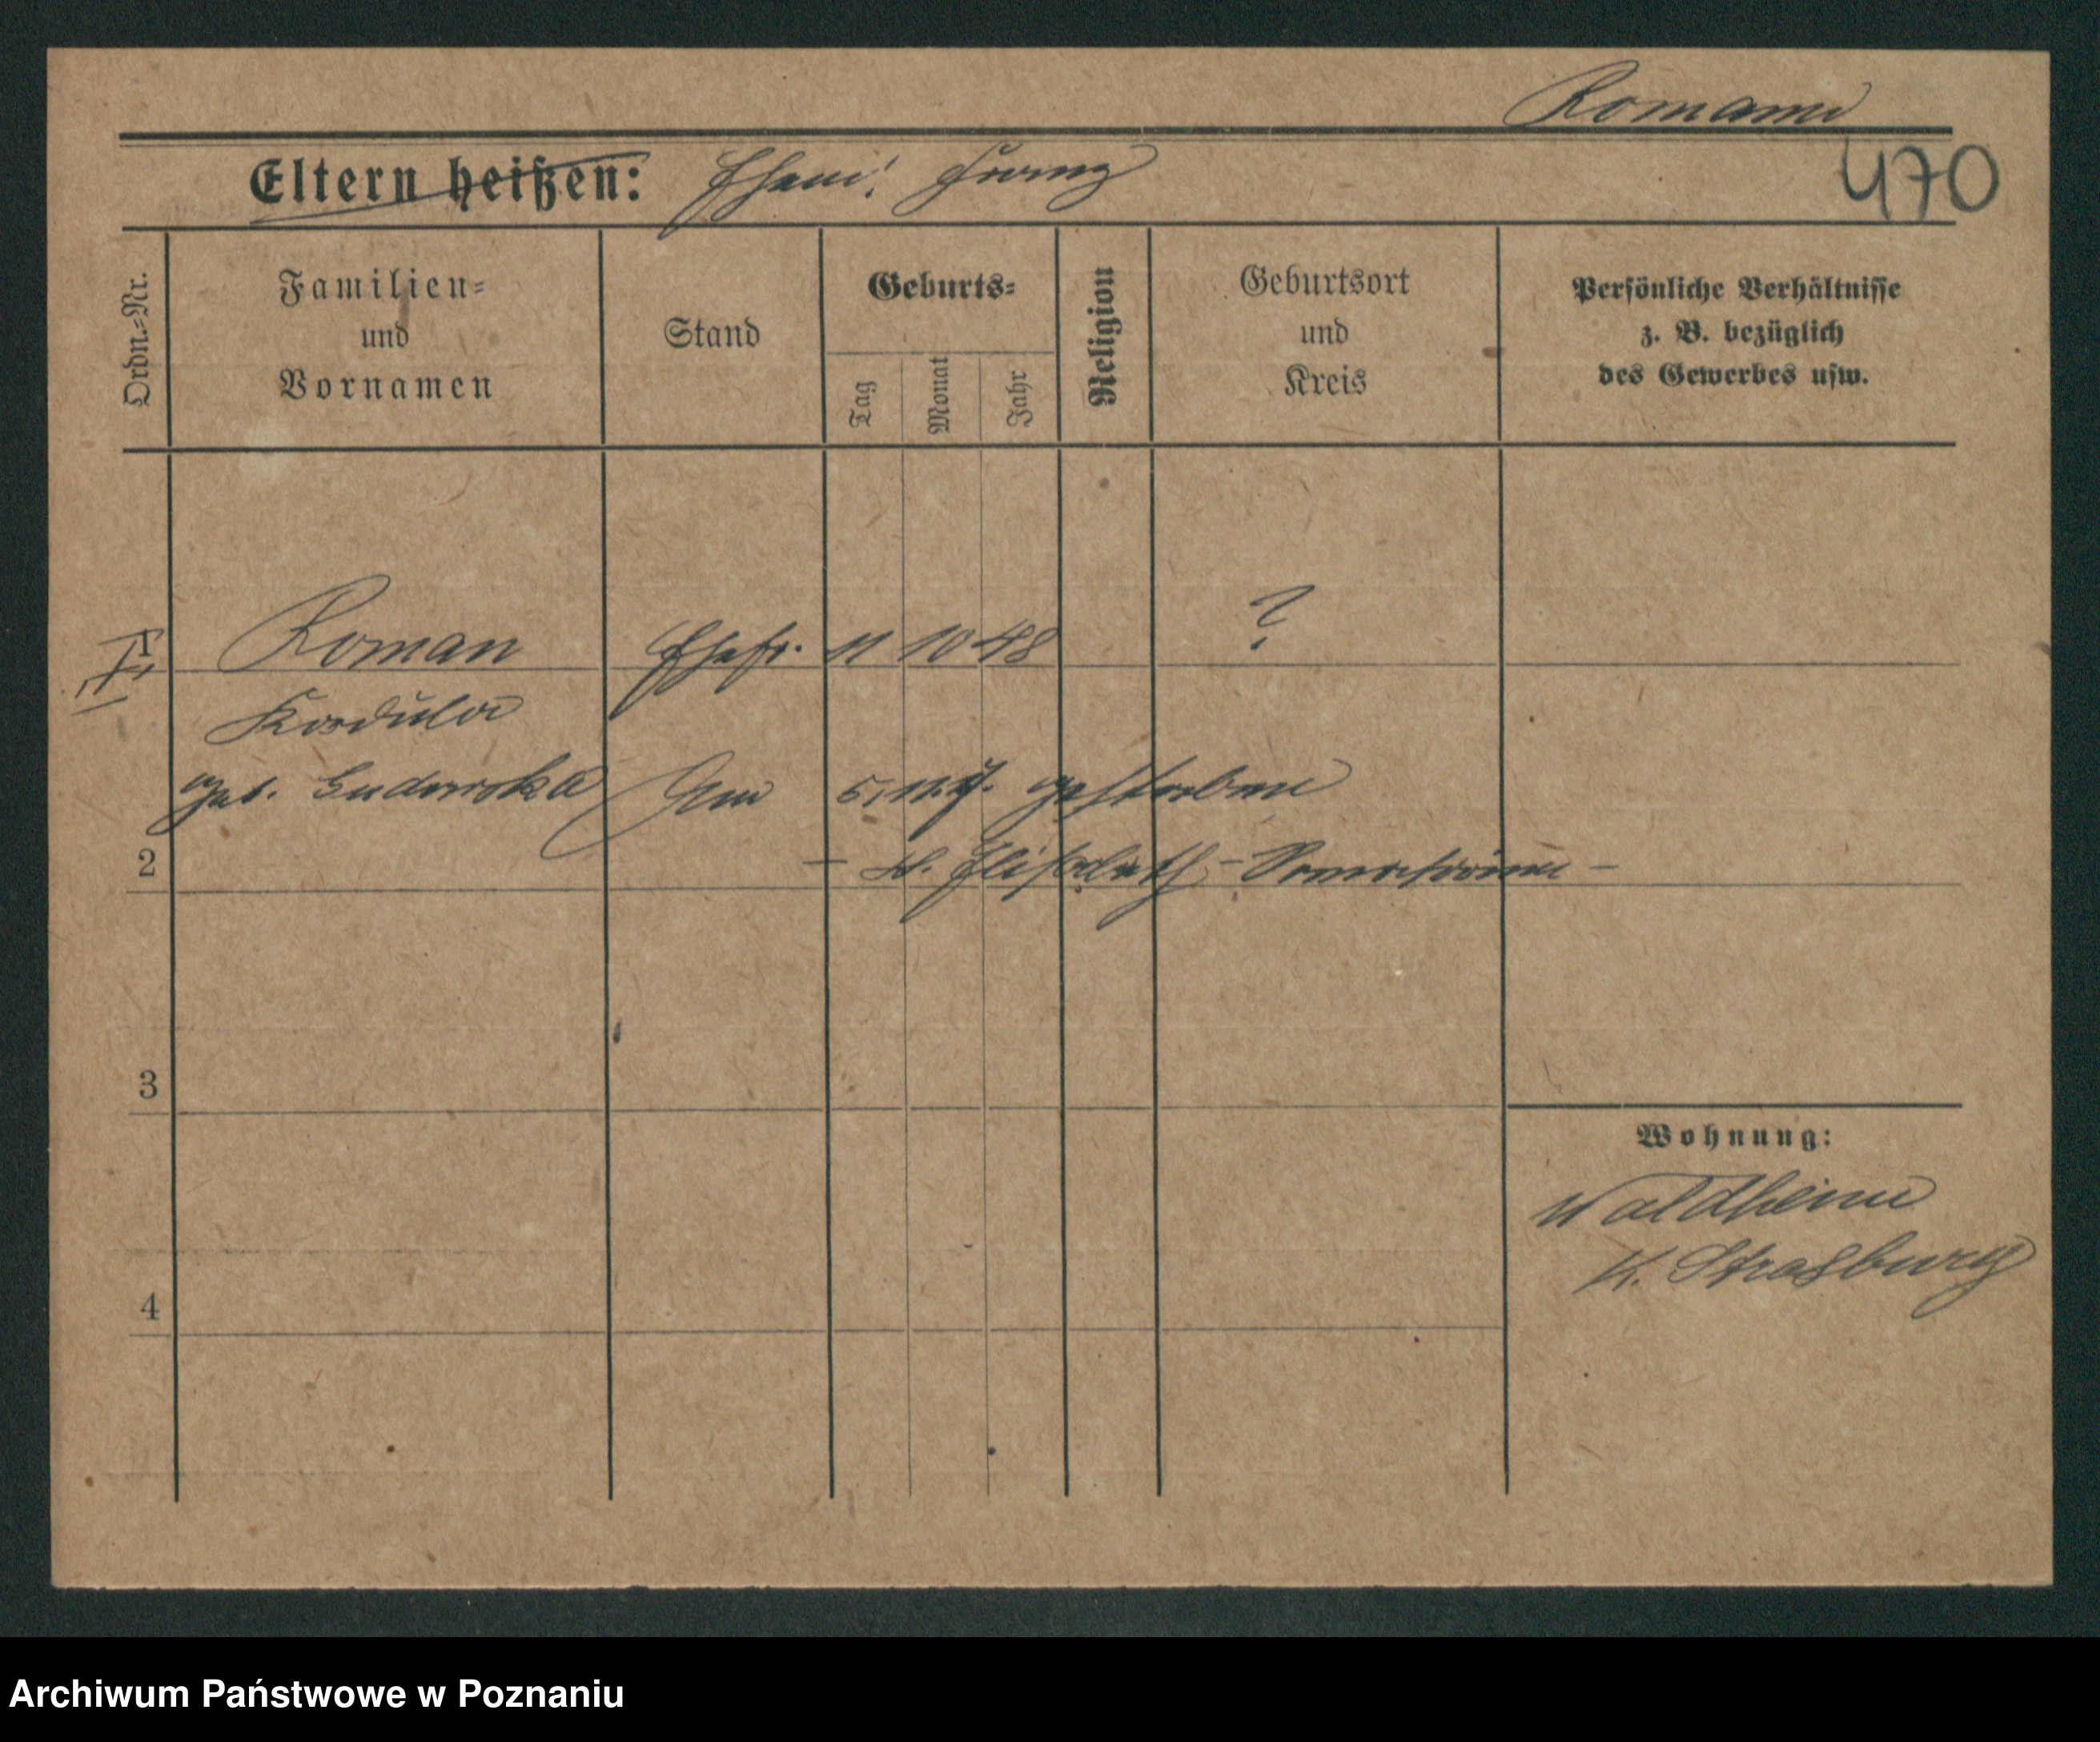 Roman
470
Eltern heißen: Ehem: Franz
Ordn.-Nr.
Familien-
und
Vornamen
Stand
Geburts-
Tag
Monat
Jahr
Religion
Geburtsort
und
Kreis
Persönliche Verhältnisse
z. B. bezüglich
des Gewerbes usw.
1 Roman Ehefr. 11 10 48 ?
Kordula
geb. Am 5. 11. gestorben
2 – St. Elisabeth –
3
Wohnung:
Waldheim
K. Strasburg
4
Archiwum Państwowe w Poznaniu